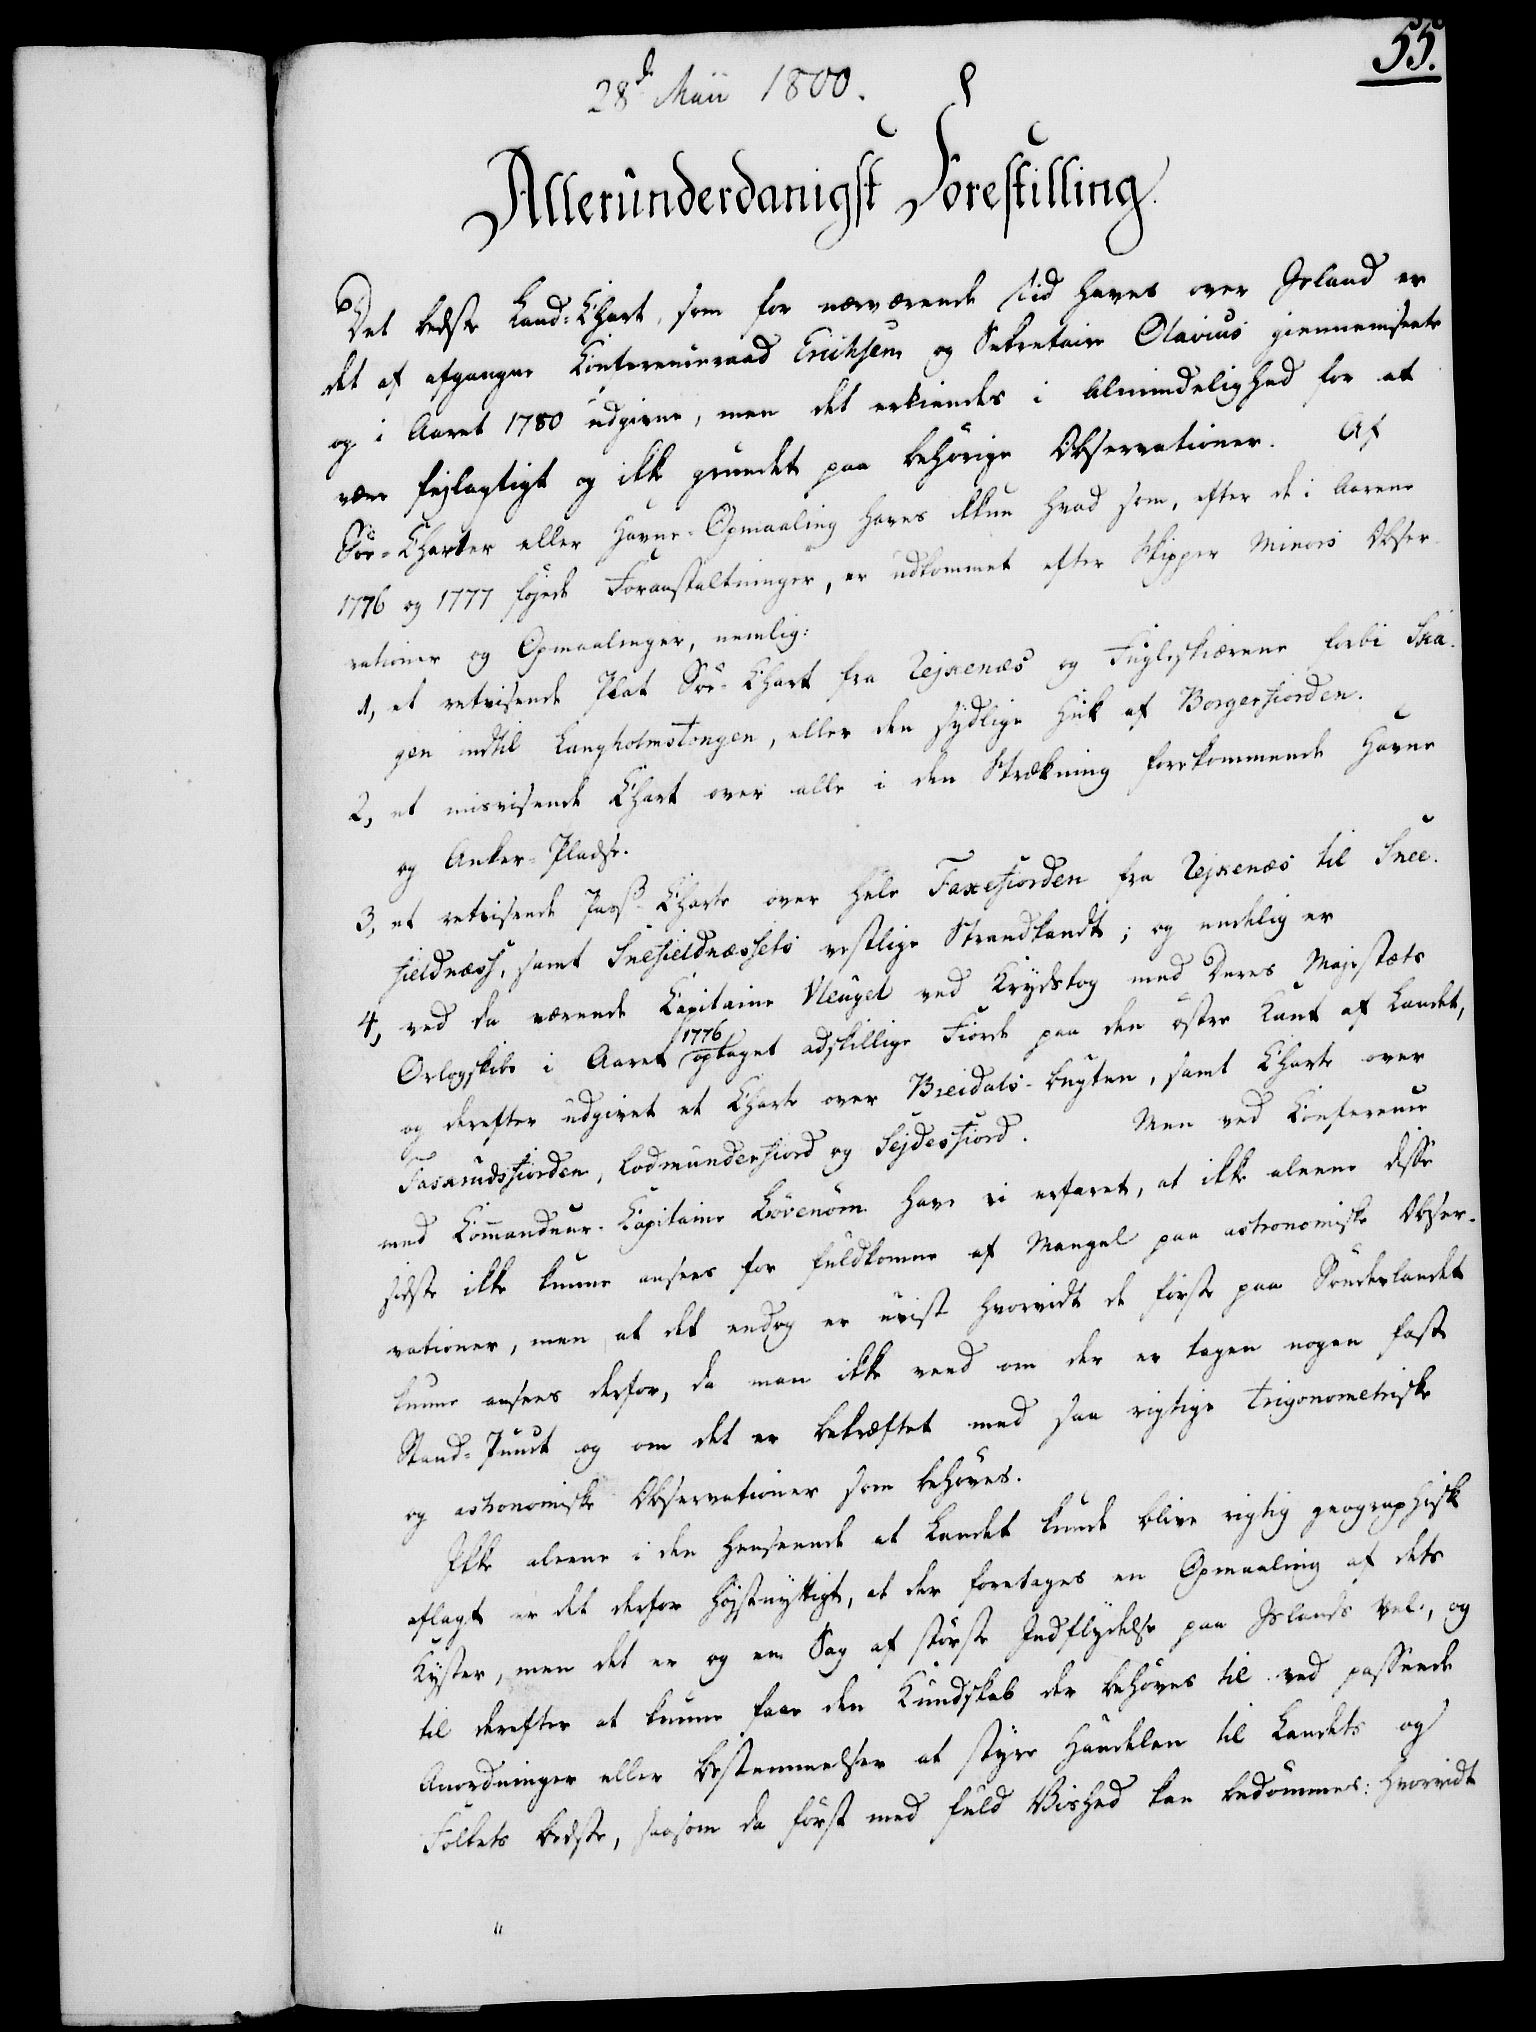 55.
28d. Maii 1800.
Allerunderdanigst Forestilling.
Det bedste Land-Chart, som for nærværende Tid haves over Island er
det af afgangne Conferenceraad Erichsen og Sekretaire Olavius giennemseete
og i Aaret 1780 udgivne, men det erkiendes i Almindelighed for at
være fejlagtigt og ikke grundet paa behörige Observationer. Af
Söe-Charter eller Havne-Opmaaling haves ikkun hvad som, efter de i Aarene
1776 og 1777 föjede Foranstaltninger, er udkommet efter Skipper Minors Obser-
vationer og Opmaalinger, nemlig:
1, et retvisende Plat Söe-Chart fra Rejkenæs og Fugleskiærene forbi Ska-
gen indtil Langholmstongen, eller den sydlige Huk af Borgerfiorden.
2, et misvisende Chart over alle i den Strækning forekommende Havne
og Anker-Pladse.
3, et retvisende Pass-Charte over hele Faxefiorden fra Rejkenæs til Snee-
fieldnæss, samt Snefieldnæssets vestlige Strandkandt; og endelig er
4, ved da værende Capitaine Fleuget ved Krydstog med Deres Majestæts
Orlogskibe i Aaret 1776 optaget adskillige Fiorde paa den östre Kant af Landet,
og derefter udgivet et Charte over Breidals-bugten, samt Charte over
Faskrudsfiorden, Lodmunderfiord og Sejdesfiord. Men ved Conference
med Commandeur-Capitaine Lövenörn have vi erfaret, at ikke alene disse
sidste ikke kunne ansees for fuldkomne af Mangel paa astronomiske Obser-
vationer, men at det endog er uvist hvorvidt de förste paa Sönderlandet
kunne ansees derfor, da man ikke veed om der er tagen nogen fast
Stand-Punct og om det er bekræftet med saa rigtige trigonometriske
og astronomiske Observationer som behöves.
Ikke alene i den Henseende at Landet kunde blive rigtig geographisk
aflagt er det derfor höjstnyttigt, at der foretages en Opmaaling af dets
Kyster, men det er og en Sag af störste Indflydelse paa Islands Vel, og
til derefter at kunne faae den Kundskab der behöves til ved passende
Anordninger eller Bestemmelser at styre Handelen til Landets og
Folkets bedste, saasom da först med fuld Vished kan bedömmes: hvorvidt